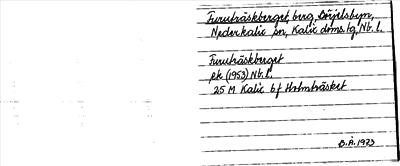 Furuträskberget, berg, Böjelsbyn,
Nederkalix sn, Kalix doms.lg, Nb. l.
Furuträskberget
ek (1953) Nb. l.
25 M Kalix bf Holmträsket
B. Å. 1973